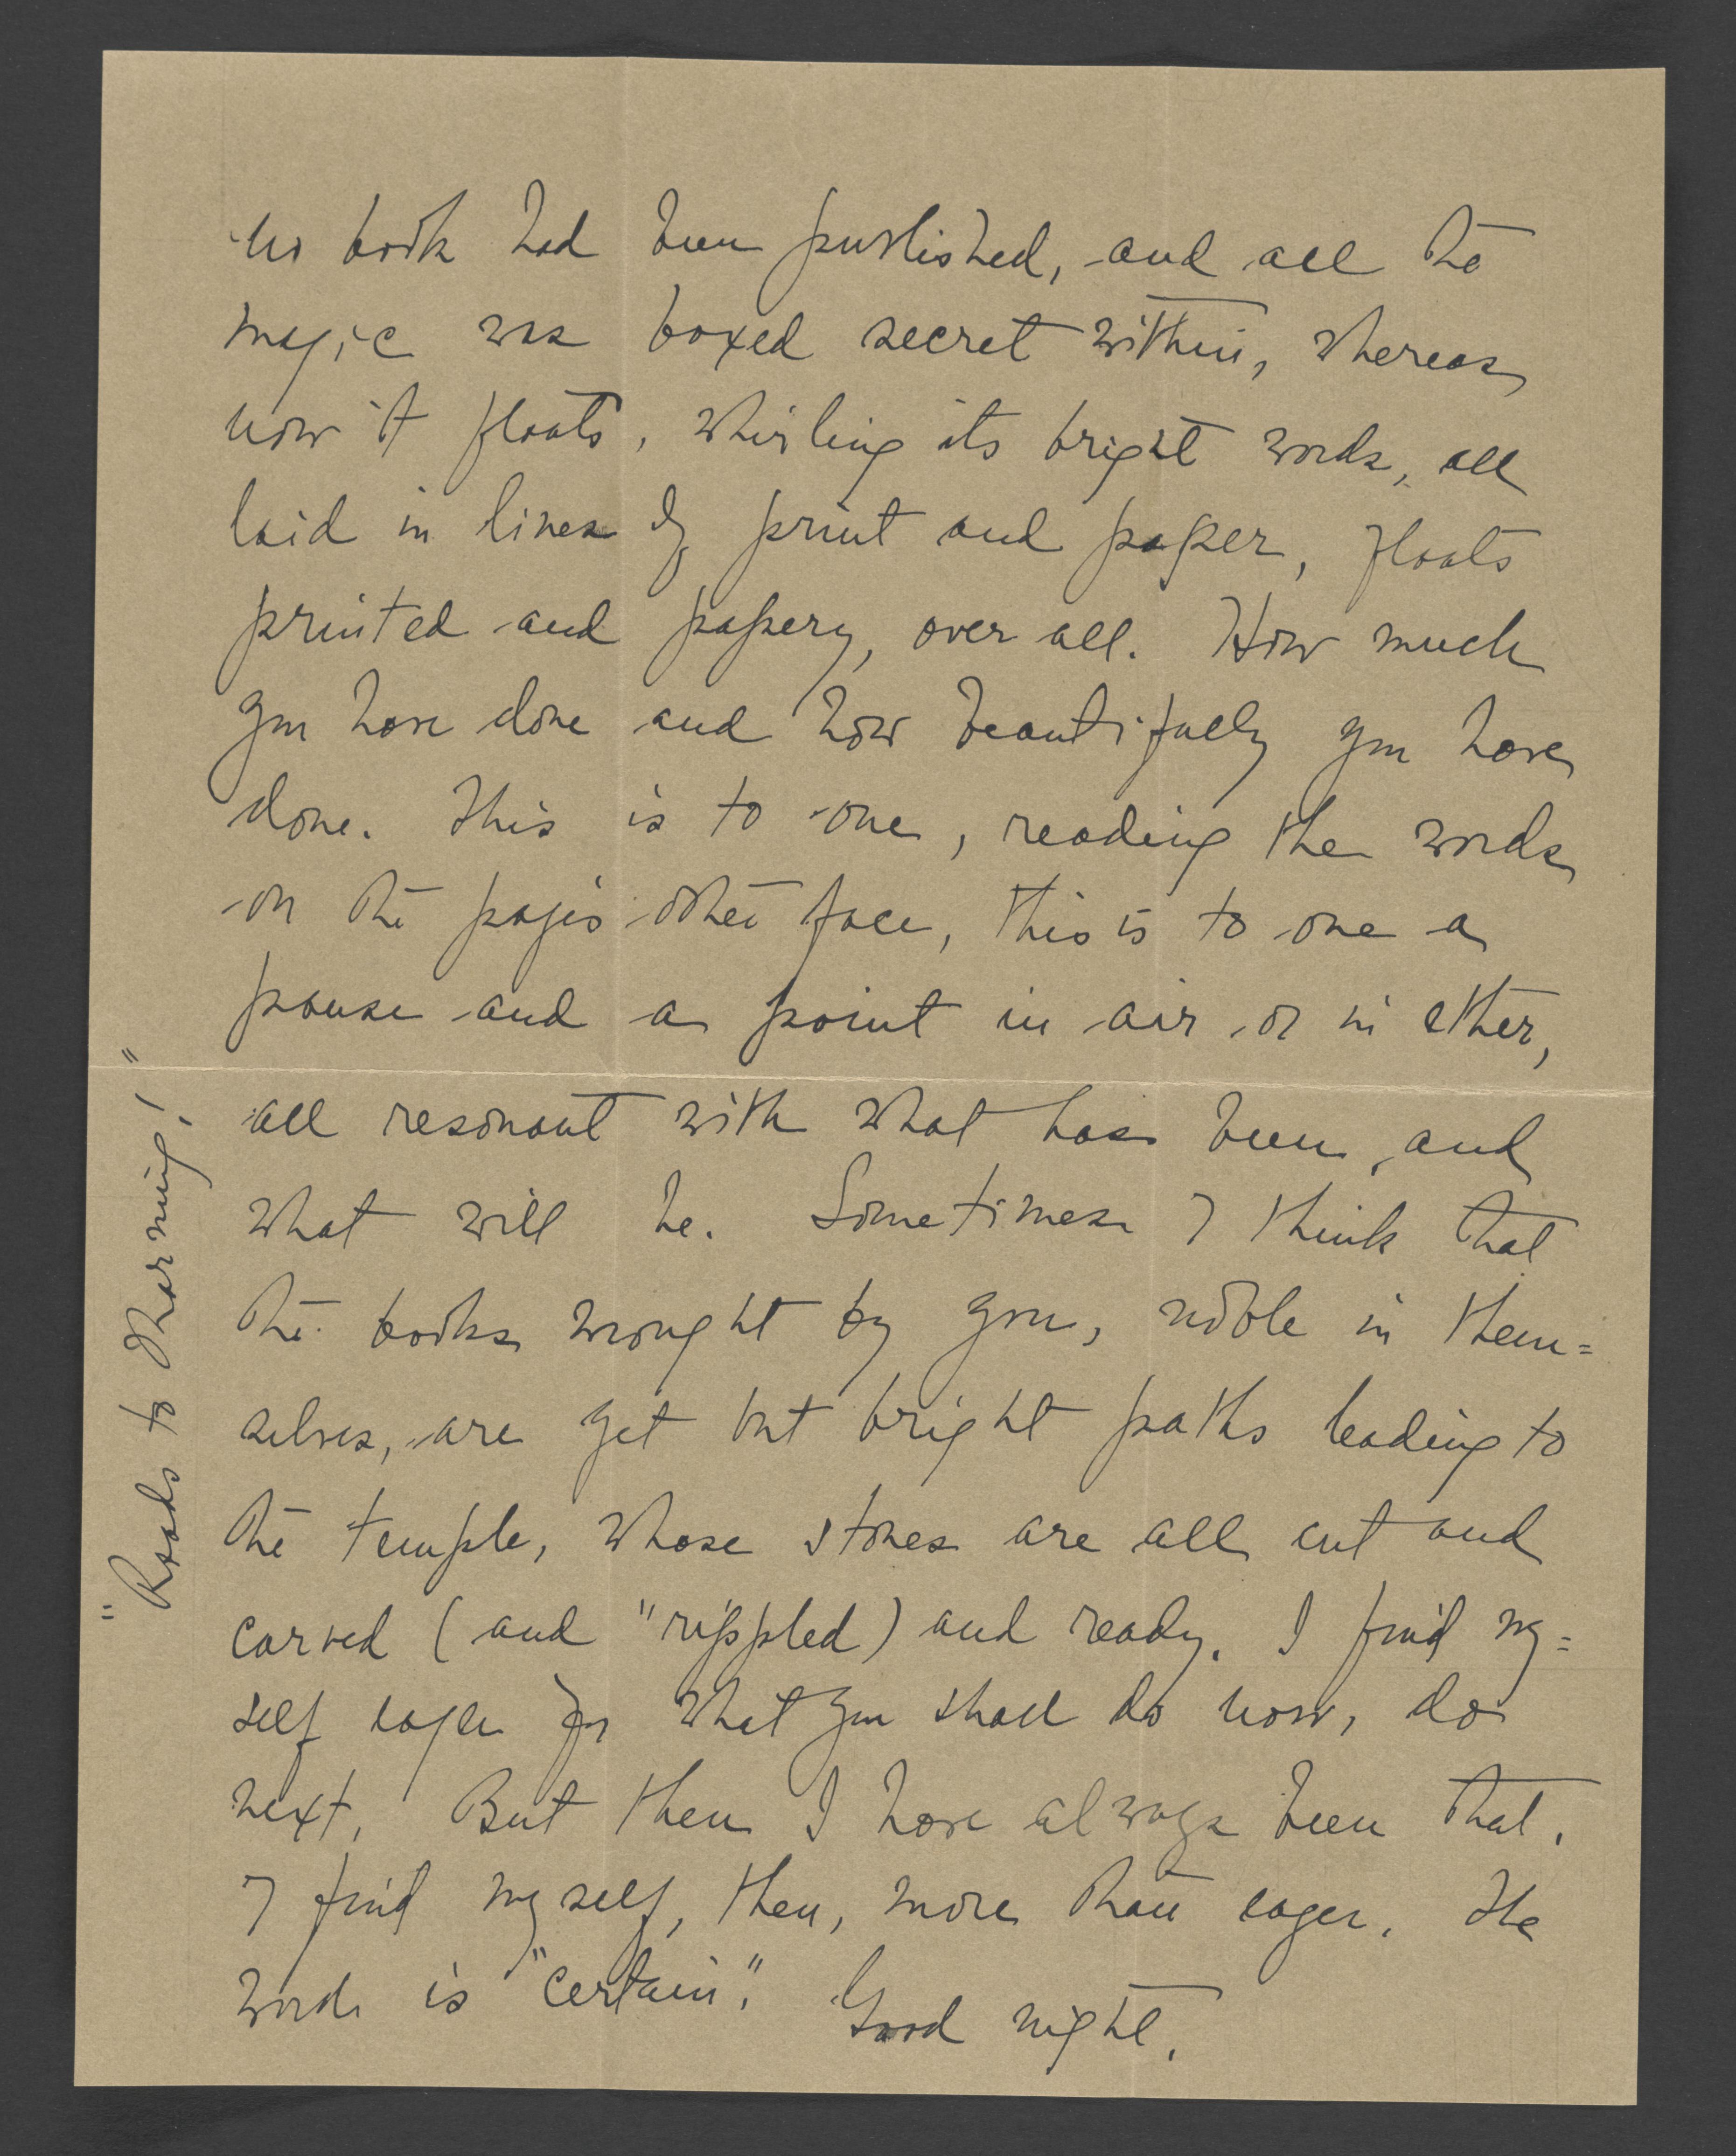 no book had been published, and all the
magic was boxed secret within, whereas
now it floats, whirling its bright words, all
laid in lines of print and paper, floats
printed and papery, over all. How much
you have done and how beautifully you have
done. This is to one, reading the words
on the page's other face, this is to one a
pause and a point in air or in ether,
all resonant with what has been, and
what will be. Sometimes I think that
the books wrought by you, noble in them=
selves, are yet but bright paths leading to
the temple, whose stones are all cut and
carved (and "rippled) and ready. I find my=
self eager for what you shall do now, do
next. But then I have always been that.
I find myself, then, more than eager. The
word is "certain". Good night.
"Roads to Tharning!"